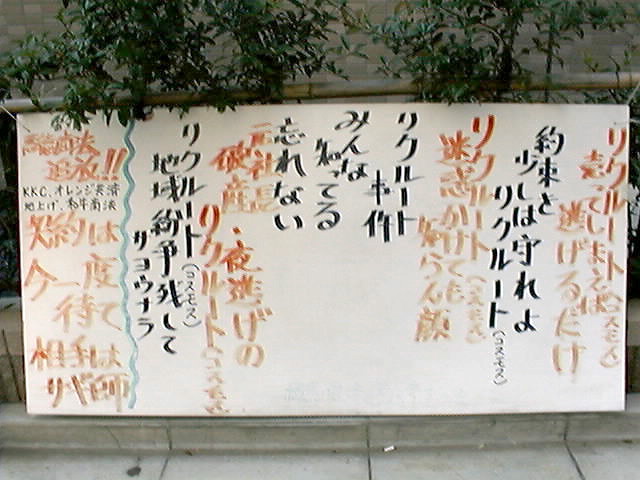 リクルート(コスモス)
売ってしまえば
逃げるだけ
約束を
少しは守れよ
リクルート(コスモス)
リクルート(コスモス)
迷惑かけても
知らん顔
リクルート
事件
みんな
知ってる
忘れない
元社長
破産、夜逃げの
リクルート(コスモス)
リクルート(コスモス)
地域紛争残して
サヨウナラ
追放!!
KKC、オレンジ共済
地上げ、和牛商法
契約は
今一度
待て
相手は
サギ師